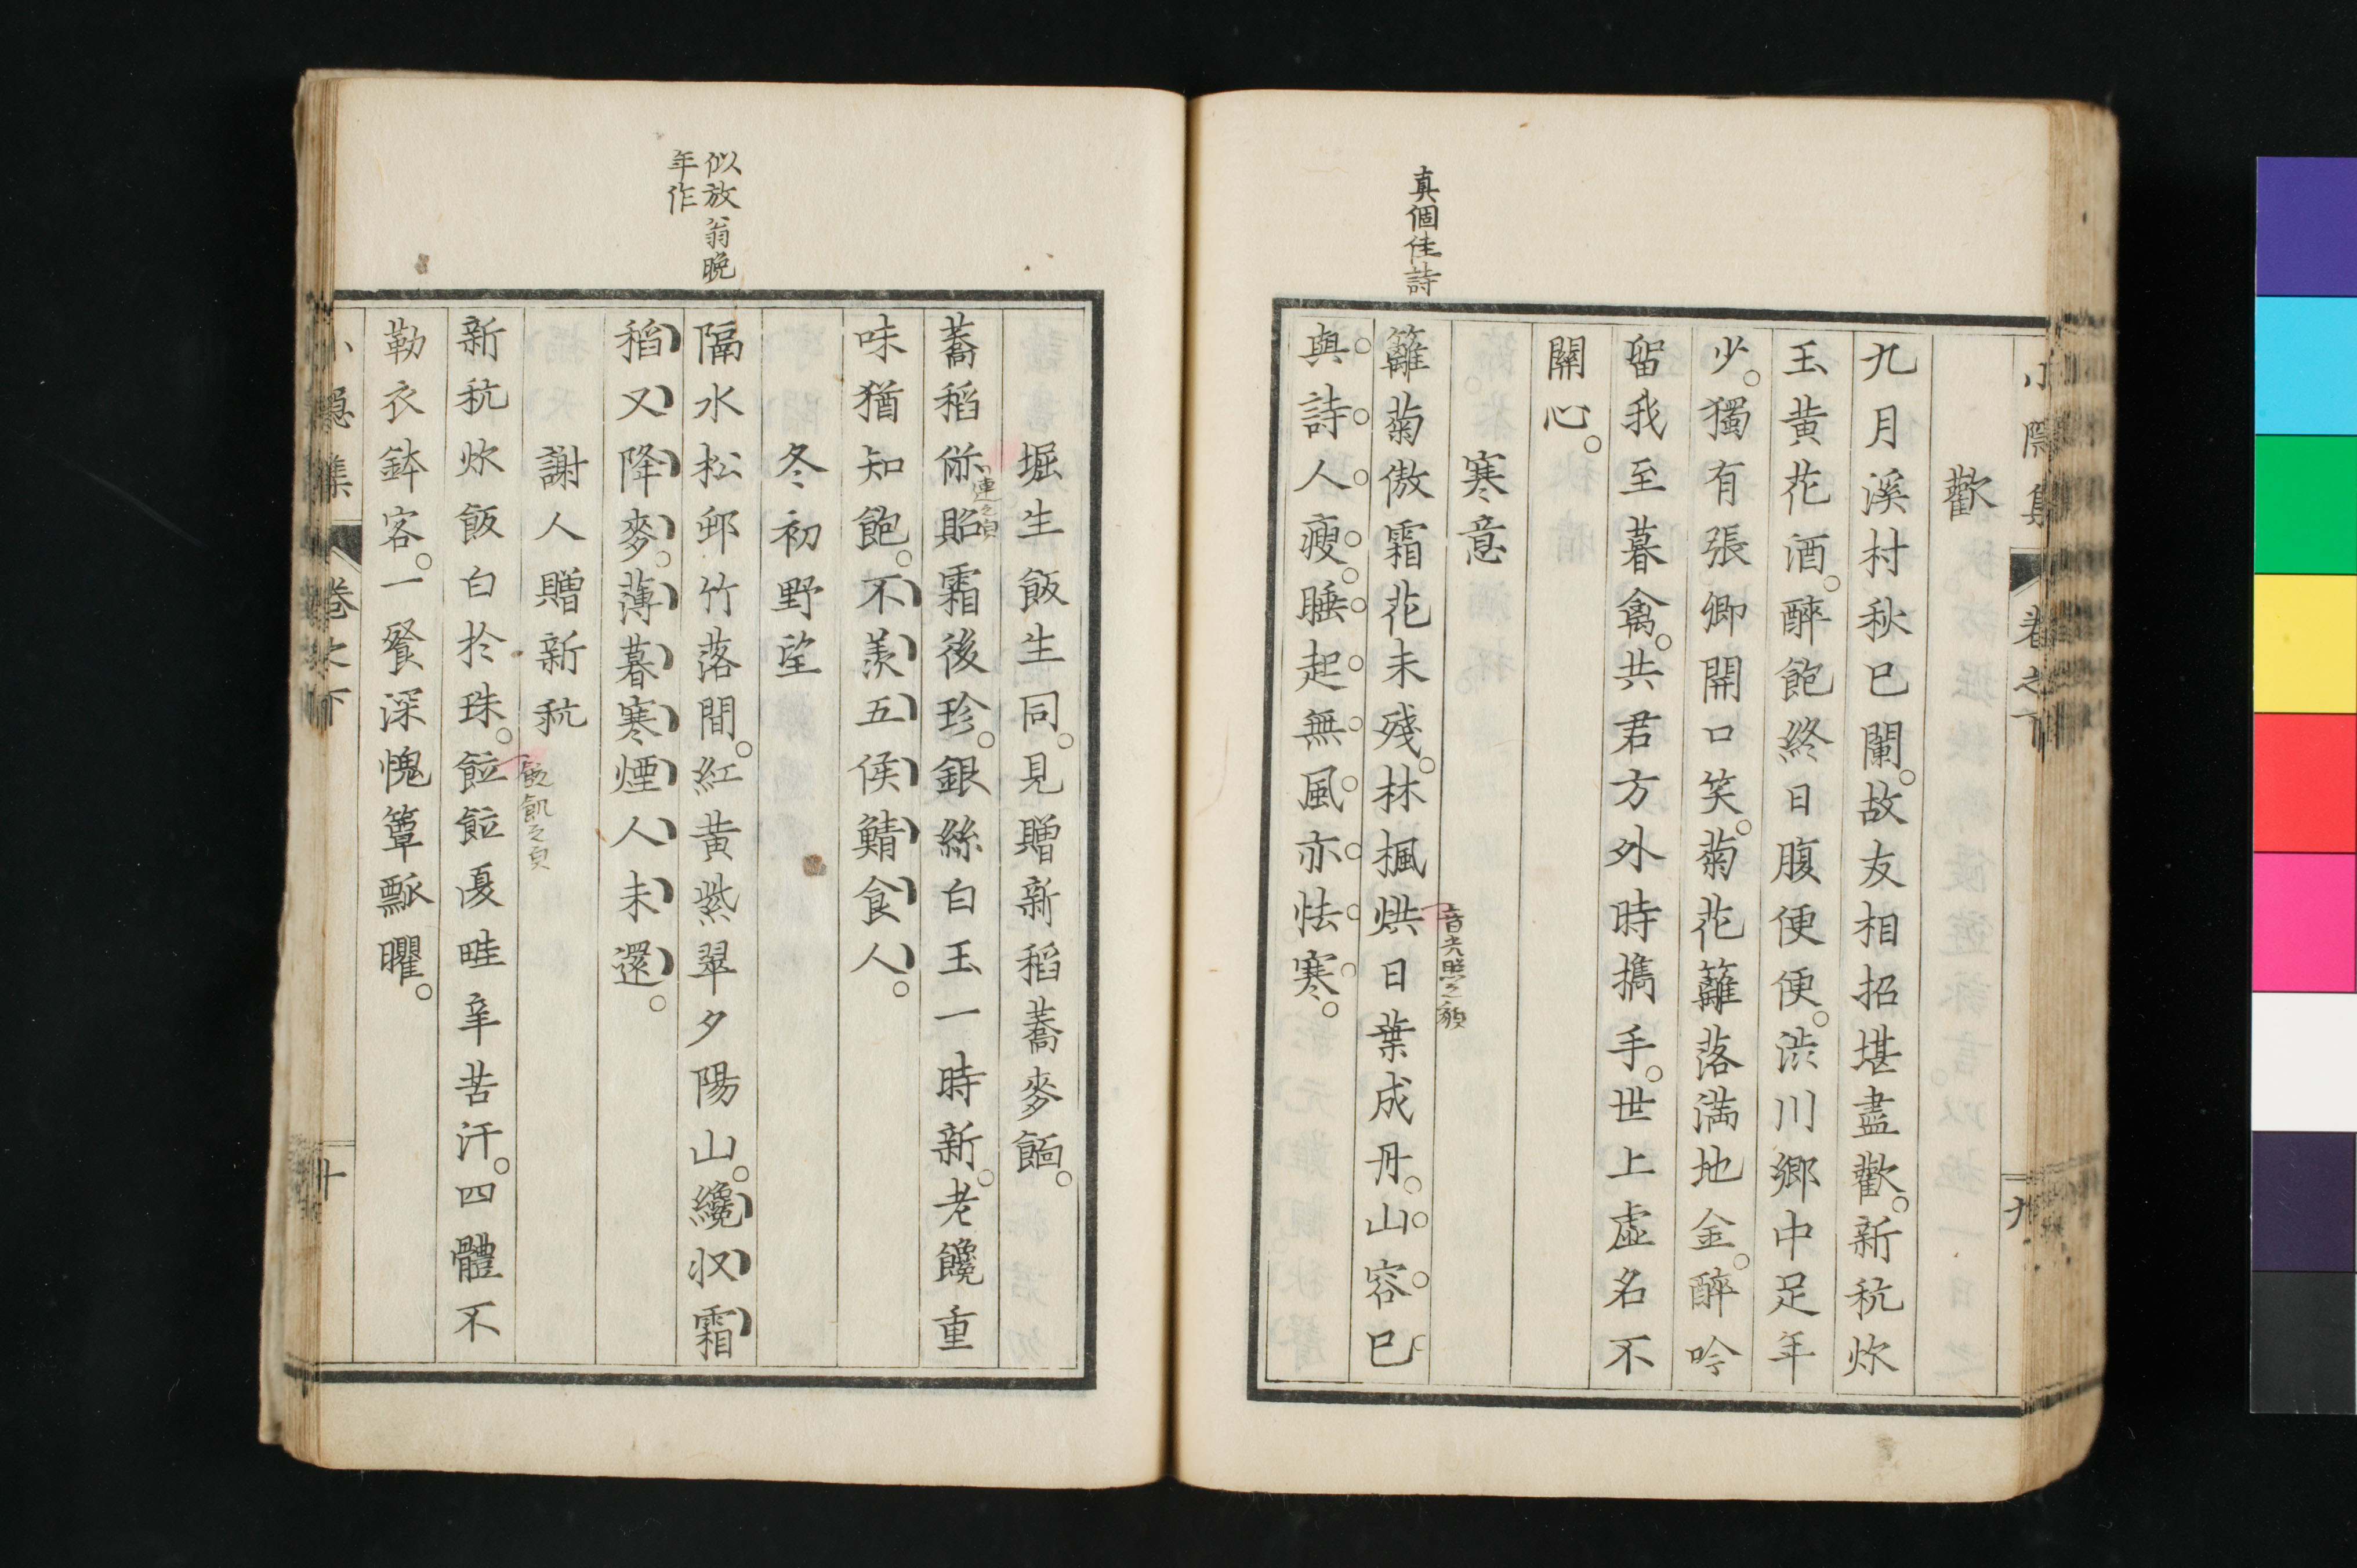 小隱集
卷之下
九
歡
九月溪村秋已闌。故友相招堪盡歡。新秔炊
玉黄花酒。醉飽終日腹便便。渋川鄉中足年
少。獨有張卿開口笑。菊花籬落満地金。醉吟
留我至暮禽。共君方外時携手。世上虛名不
關心。
寒意
籬菊傲霜花未殘。林楓烘日葉成丹。山容已
與詩人瘦。睡起無風亦怯寒。
真個佳詩
堀生飯生同。見贈新稻蕎麥𩝐。
蕎稻𠊓貽霜後珍。銀絲白玉一時新。老饞重
味猶知飽。不羨五侯鯖食人。
冬初野望
隔水松邨竹落間。紅黄紫翠夕陽山。纔収霜
稻又降麥。薄暮寒煙人未還。
似放翁晚
年作
謝人贈新秔
新秔炊飯白於珠。飯飯憂畦辛苦汗。四體不
勤衣鉢客。一餐深愧簞瓢臞。
小隱集
卷之下
十